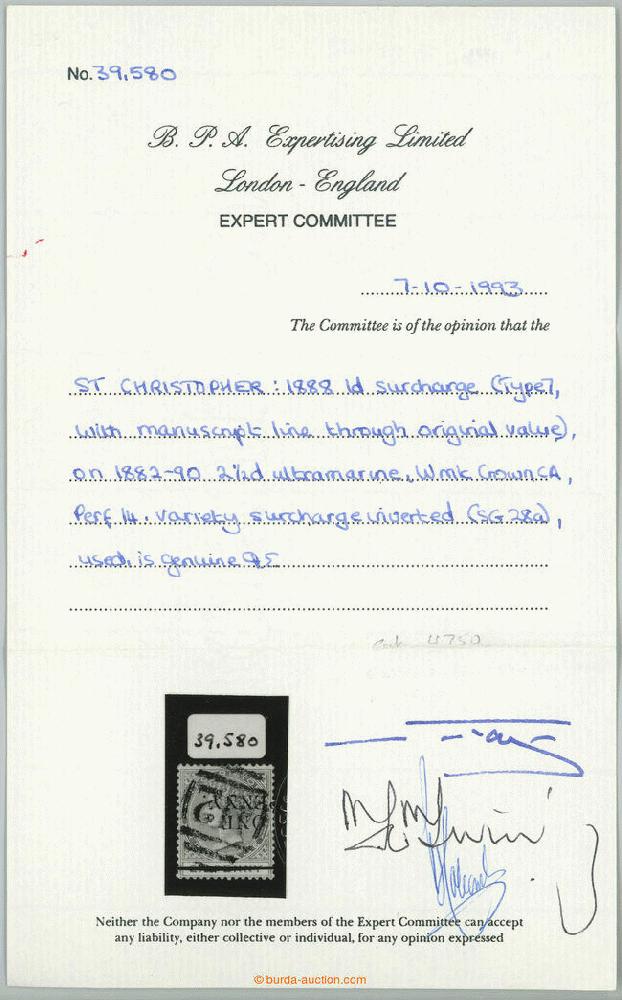 No. 39,580
B. P. A. Expertising Limited
London - England
EXPERT COMMITTEE
7-10-1993
The Committee is of the opinion that the
ST CHRISTOPHER: 1888 1d surcharge (Type 7,
with manuscript line through original value),
on 1882-90 2½d ultramarine, Wmk Crown CA,
Perf 14. variety surcharge inverted (SG 28a),
used, is genuine
4750
39,580
ONE
PENNY
Neither the Company nor the members of the Expert Committee can accept
any liability, either collective or individual, for any opinion expressed
©burda-auction.com